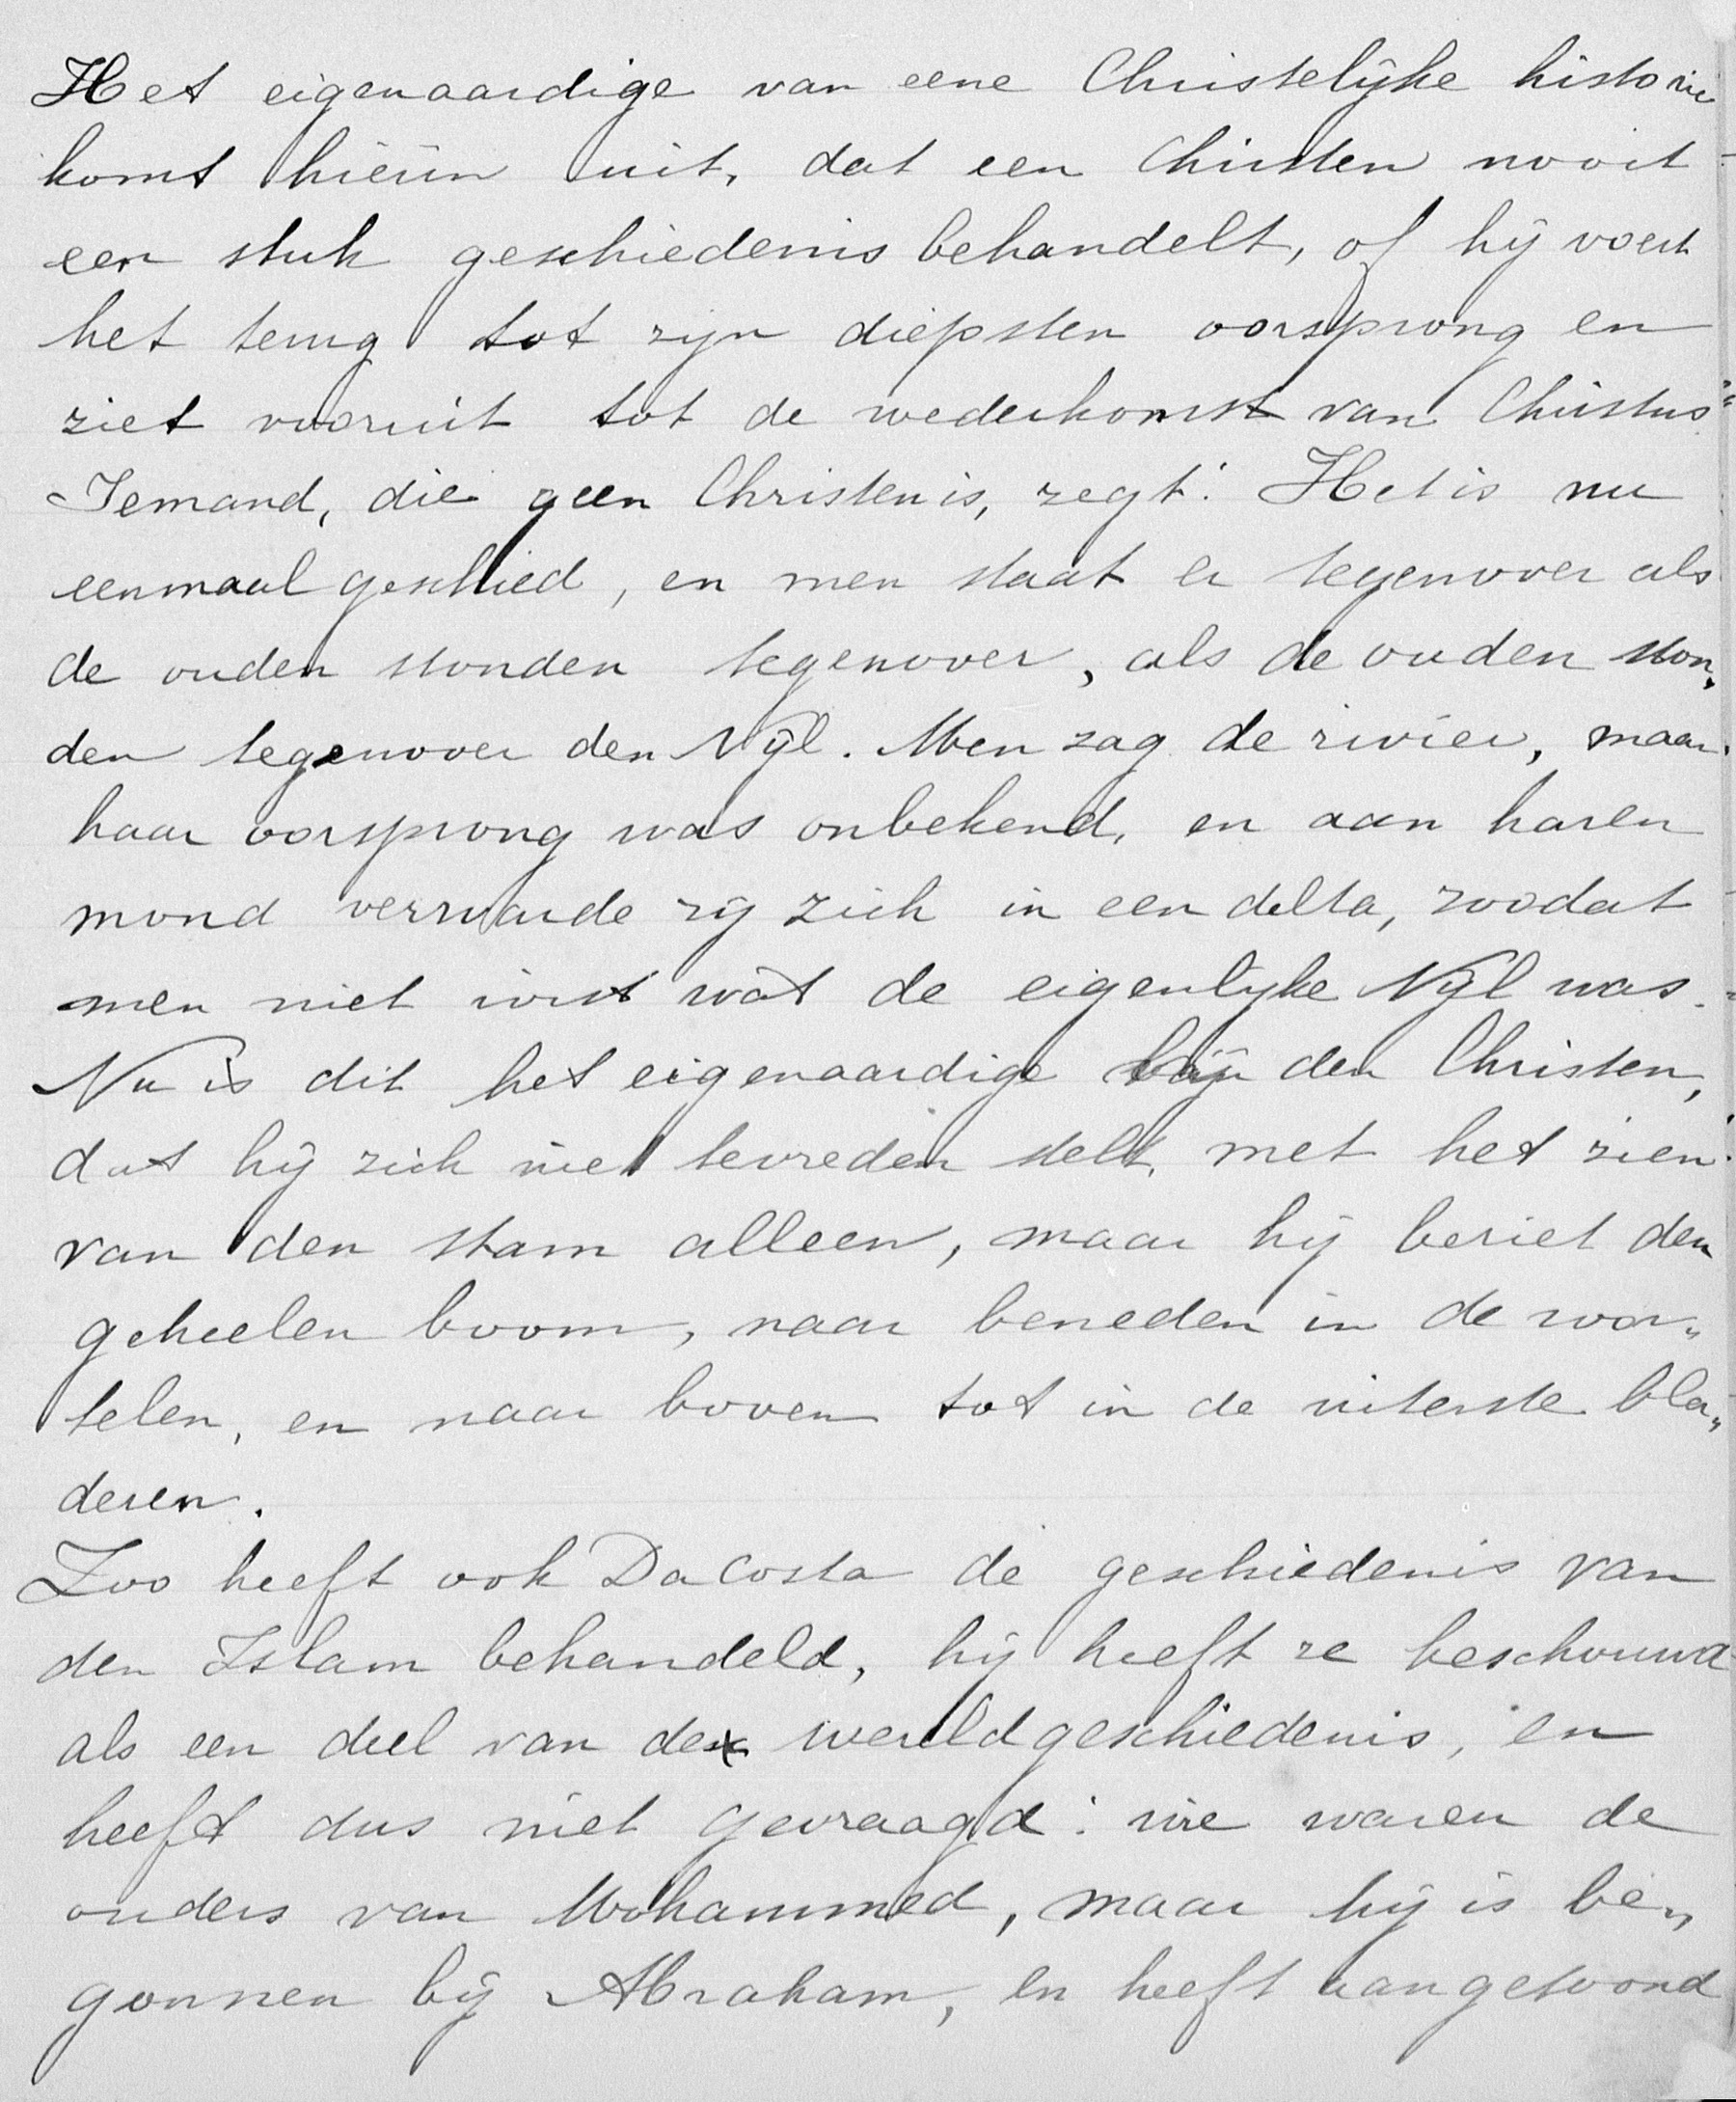 Het eigenaardige van eene Christelijke historie
komt hierin uit, dat een Christen nooit
een stuk geschiedenis behandelt, of hij voert
het terug tot zijn diepsten oorsprong en
ziet vooruit tot de wederkomst van Christus
Iemand, die geen Christen is, zegt: Het is nu
eenmaal geschied, en men staat er tegenover als
de ouden stonden tegenover, als de ouden ston„
den tegenover den Nijl. Men zag de rivier, maar
haar oorsprong was onbekend, en aan haren
mond verwarde zij zich in een delta, zoodat
men niet wist wat de eigenlijke Nijl was.
Nu is dit het eigenaardige bij den Christen,
dat hij zich niet tevreden stelt, met het zien
van den stam alleen, maar hij beziet den
geheelen boom, naar beneden in de wor„
telen, en naar boven tot in de uiterste bla„
deren.
Zoo heeft ook Da Costa de geschiedenis van
den Islam behandeld, hij heeft ze beschouwd
als een deel van de wereldgeschiedenis, en
heeft dus niet gevraagd: wie waren de
ouders van Mohammed, maar hij is be„
gonnen bij Abraham, en heeft aangetoond